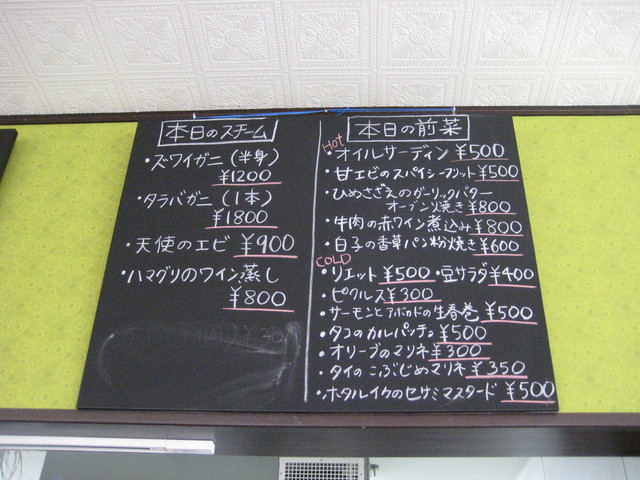 本日のスチーム
・ズワイガニ(半身)
¥1200
・タラバガニ(1本)
¥1800
・天使のエビ ¥900
・ハマグリのワイン蒸し
¥800
本日の前菜
Hot
・オイルサーディン ¥500
・甘エビのスパイシーフリット ¥500
・ひめさざえのガーリックバター
オーブン焼き ¥800
・牛肉の赤ワイン煮込み ¥800
・白子の香草パン粉焼き ¥600
COLD
・リエット ¥500 ・豆サラダ ¥400
・ピクルス ¥300
・サーモンとアボカドの生春巻 ¥500
・タコのカルパッチョ ¥500
・オリーブのマリネ ¥300
・タイのこぶじめマリネ ¥350
・ホタルイカのセサミマスタード ¥500